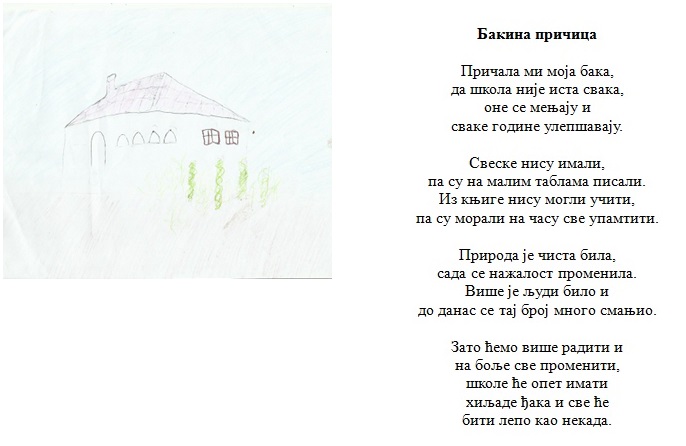 Бакина причица
Причала ми моја бака,
да школа није иста свака,
оне се мењају и
сваке године улепшавају.
Свеске нису имали,
па су на малим таблама писали.
Из књиге нису могли учити,
па су морали на часу све упамтити.
Природа је чиста била,
сада се нажалост променила.
Више је људи било и
до данас се тај број много смањио.
Зато ћемо више радити и
на боље све променити,
школе ће опет имати
хиљаде ђака и све ће
бити лепо као некада.